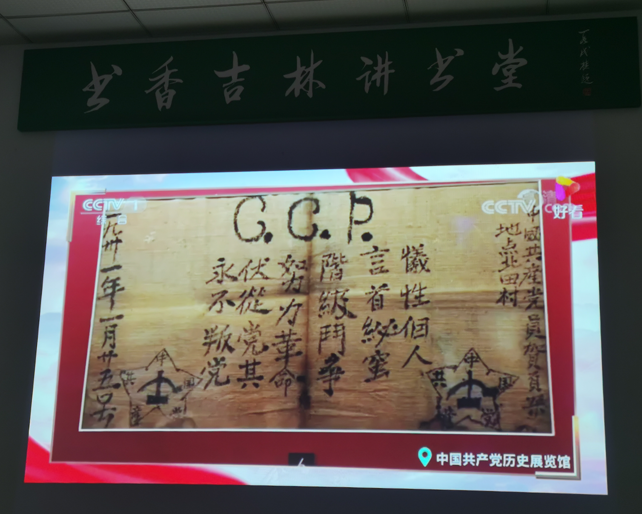 书香吉林讲书堂
CCTV 1
综合
CCTV
好看
C.C.P.
中國共產党員賀頁
地点北田村
犠牲個人
言首秘蜜
階級鬥争
努力革命
伏從党其
永不叛党
九卅一年一月廿五号
中國共產党历史展览馆